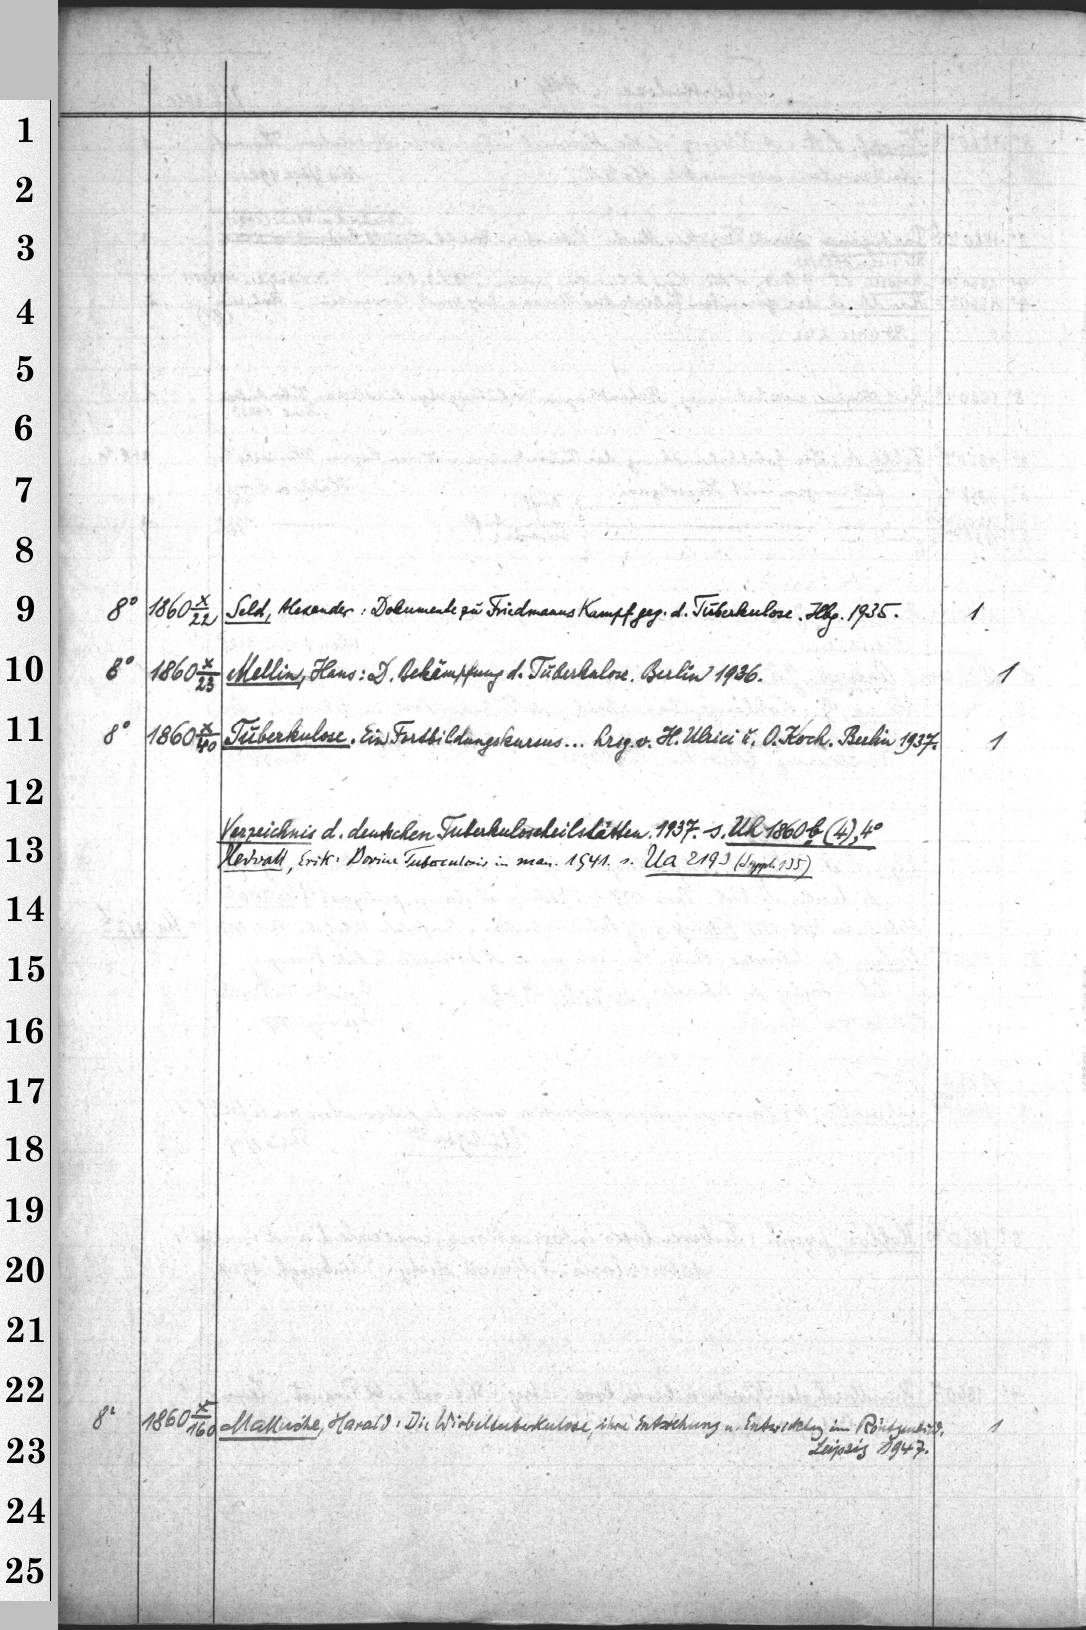 1
2
3
4
5
6
7
8
9
8° 1860 x/22 Seld, Alexander: Dokumente zu Friedmanns Kampf geg. d. Tuberkulose. Hbg. 1935. 1
10
8° 1860 x/23 Mellin, Hans: D. Bekämpfung d. Tuberkulose. Berlin 1936. 1
11
8° 1860 x/40 Tuberkulose. Ein Fortbildungskursus... hrsg. v. H. Ulrici u. O. Koch. Berlin 1937. 1
12
Verzeichnis d. deutschen Tuberkuloseheilstätten. 1937. s. Uh 1860 b (4), 4°
13
Hedvall, Erik: Bovine Tuberculosis in man. 1941. s. Ua 2193 (Suppl. 135)
14
15
16
17
18
19
20
21
22
8° 1860 x/160 Harald: Die Wirbeltuberkulose, ihre Entstehung u. Entwicklg im Röntgenbild.
23
Leipzig 1947. 1
24
25